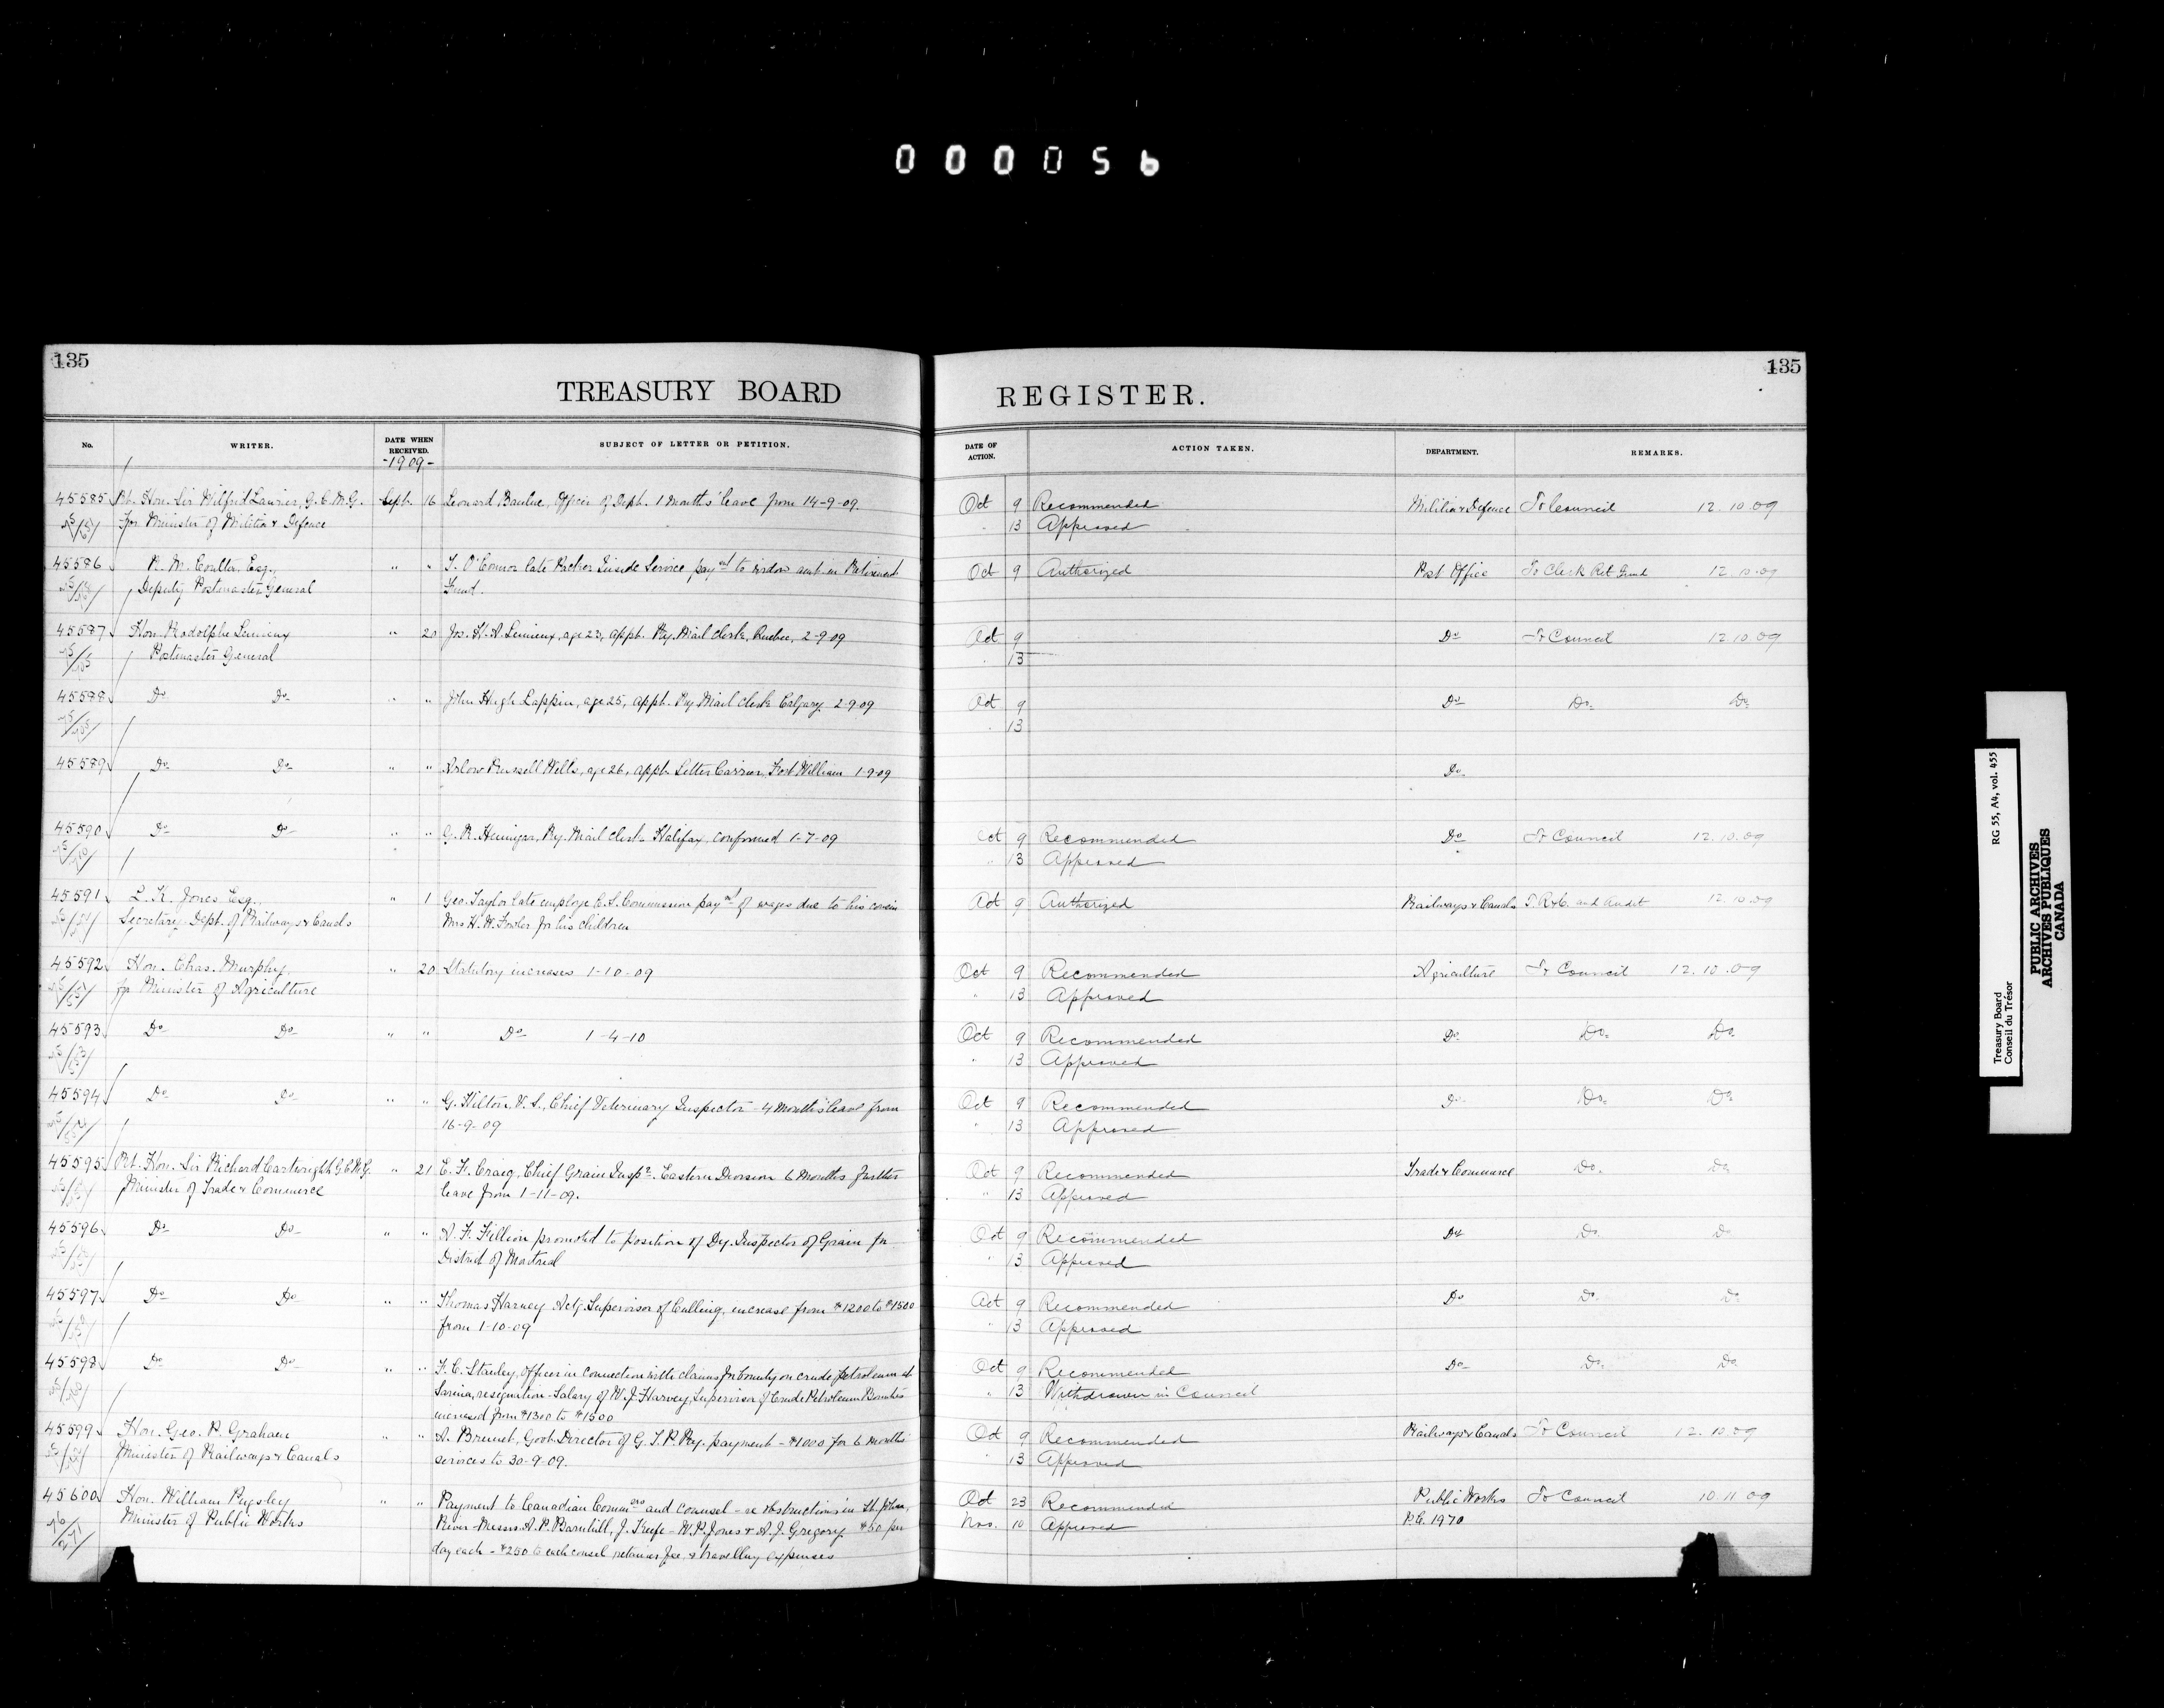 000056
135
135
TREASURY BOARD REGISTER.
No. WRITER. DATE WHEN RECEIVED. SUBJECT OF LETTER OR PETITION. DATE OF ACTION. ACTION TAKEN. DEPARTMENT. REMARKS.
-1909-
45585 Rt. Hon. Sir Wilfrid Laurier, G.C.M.G. Sept. 16 Leonard Officer of Dept. 1 months' leave from 14-9-09. Oct 9 Recommended Militia & Defence To Council 12.10.09
for Minister of Militia & Defence 13 Approved
45586 R. M. Coulter, Esq., " " O'Connor late Packer Inside Service paymt to widow amt in Retirement Oct 9 Authorized Post Office To Clerk Ret. Fund 12.10.09
Deputy Postmaster General Fund.
45587 Hon. Rodolphe Lemieux " 20 Jos. H. A. Lemieux, age 23, appt. Ry. Mail Clerk, Quebec, 2-9-09 Oct 9 Do To Council 12.10.09
Postmaster General 13
45588 Do Do " " John Hugh Lappin, age 25, appt. Ry Mail Clerk Calgary 2-9-09 Oct 9 Do Do. Do.
13
45589 Do Do " " Arlow Russell Wells, age 26, appt. Letter Carrier, Fort William 1-9-09 Do.
45590 Do Do " " G. R. Ry. Mail Clerk Halifax, confirmed 1-7-09 Oct 9 Recommended Do To Council 12.10.09
" 13 Approved
45591 L. K. Jones Esq., " 1 Geo. Taylor late employe Commission paymt of wages due to his cousin Oct 9 Authorized Railways & Canals T. R&C. and Audit 12.10.09
Secretary Dept. of Railways & Canals Mrs H. W. Fowler for his children
45592 Hon. Chas. Murphy, " 20 Statutory increases 1-10-09 Oct 9 Recommended Agriculture To Council 12.10.09
for Minister of Agriculture " 13 Approved
45593 Do Do " " Do 1-4-10 Oct 9 Recommended Do. Do. Do.
" 13 Approved
45594 Do Do " " G. Hilton, V.S., Chief Veterinary Inspector - 4 Months' leave from Oct 9 Recommended Do Do. Do.
16-9-09 " 13 Approved
45595 Rt. Hon. Sir Richard Cartwright G.C.M.G. " 21 Craig, Chief Grain Inspr. Eastern Division 6 Months further Oct 9 Recommended Trade & Commerce Do. Do
Minister of Trade & Commerce leave from 1-11-09. " 13 Approved
45596 Do Do " " A. F. Fillion promoted to position of Dy. Inspector of Grain for Oct 9 Recommended Do Do. Do
District of Montreal " 13 Approved
45597 Do Do " " Thomas Harney Actg. Supervisor of Culling, increase from $1200 to $1500 Oct 9 Recommended Do Do. Do.
from 1-10-09 " 13 Approved
45598 Do Do " " F. C. Stanley, Officer in connection with claims for bounty on crude petroleum at Oct 9 Recommended Do Do. Do
Sarnia, resignation - Salary of W. J. Harvey, Supervisor of Crude Petroleum Bounties " 13 Withdrawn in Council
increased from $1300 to $1500
45599 Hon. Geo. P. Graham " " A. Brunet, Govt. Director of G. T. P. Ry. payment - $1000 for 6 months Oct 9 Recommended Railways & Canals To Council 12.10.09
Minister of Railways & Canals services to 30-9-09. 13 Approved
45600 Hon. William Pugsley " " Payment to Canadian Commrs and counsel - re obstructions in St. John, Oct 23 Recommended Public Works To Council 10.11.09
Minister of Public Works River - Messrs. A. P. Barnhill, J. Keefe - W. P. Jones & A. J. Gregory $50 per Nov. 10 Approved P.C. 1970
day each - $250 to each counsel retainer fee & travelling expenses
RG 55, A4, vol. 455
Treasury Board
Conseil du Trésor
PUBLIC ARCHIVES
ARCHIVES PUBLIQUES
CANADA